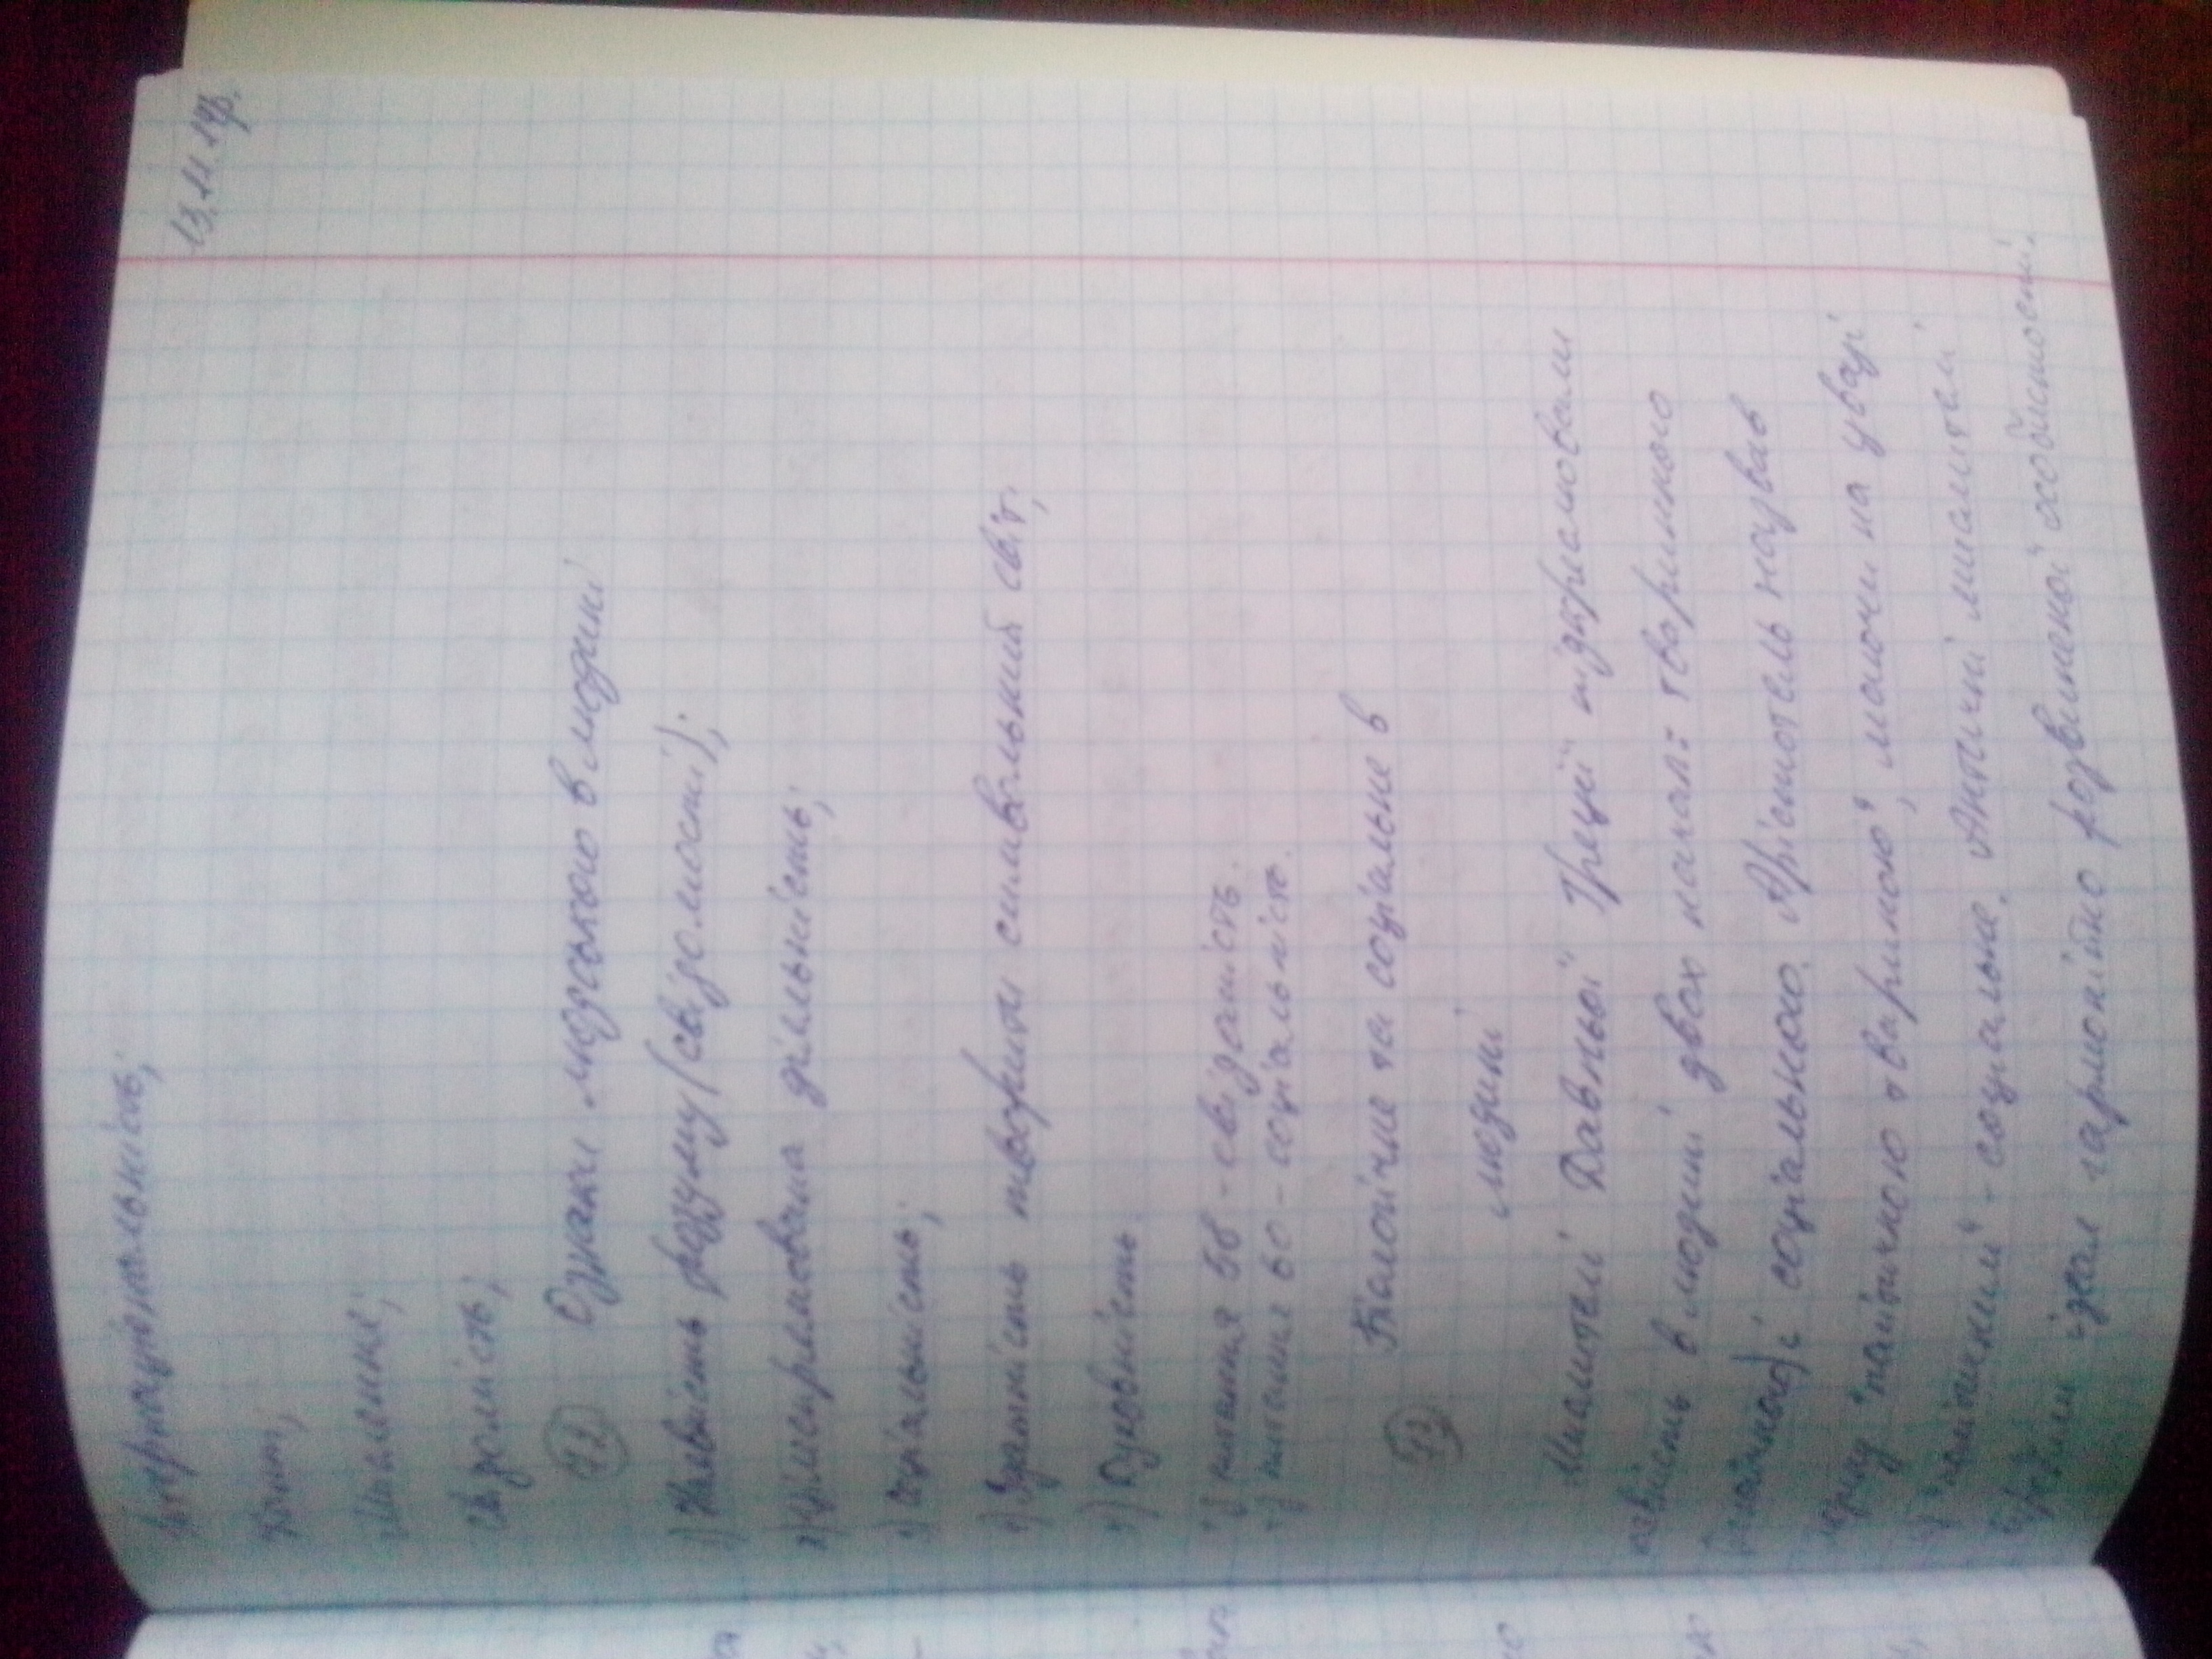 Інтернаціональність;
13.11.14р.
Мислення;
Свідомість;
72 Ознаки людського в людині
1) Наявність розуму (свідомості);
2) Цілеспрямована діяльність;
3) Соціальність;
4) Здатність творити символьний світ;
5) Духовність
питання 58 - свідомість.
питання 60 - соціальність.
Біологічне та соціальне в
73
людині
Мислителі Давньої Греції підкреслювали
наявність в людині двох начал: тваринного
(біологічного) і соціального. Арістотель назвав
людину "політичною твариною", маючи на увазі
"політичним" - соціальне. Античні мислителі
ідеал гармонійно розвиненої особистості.